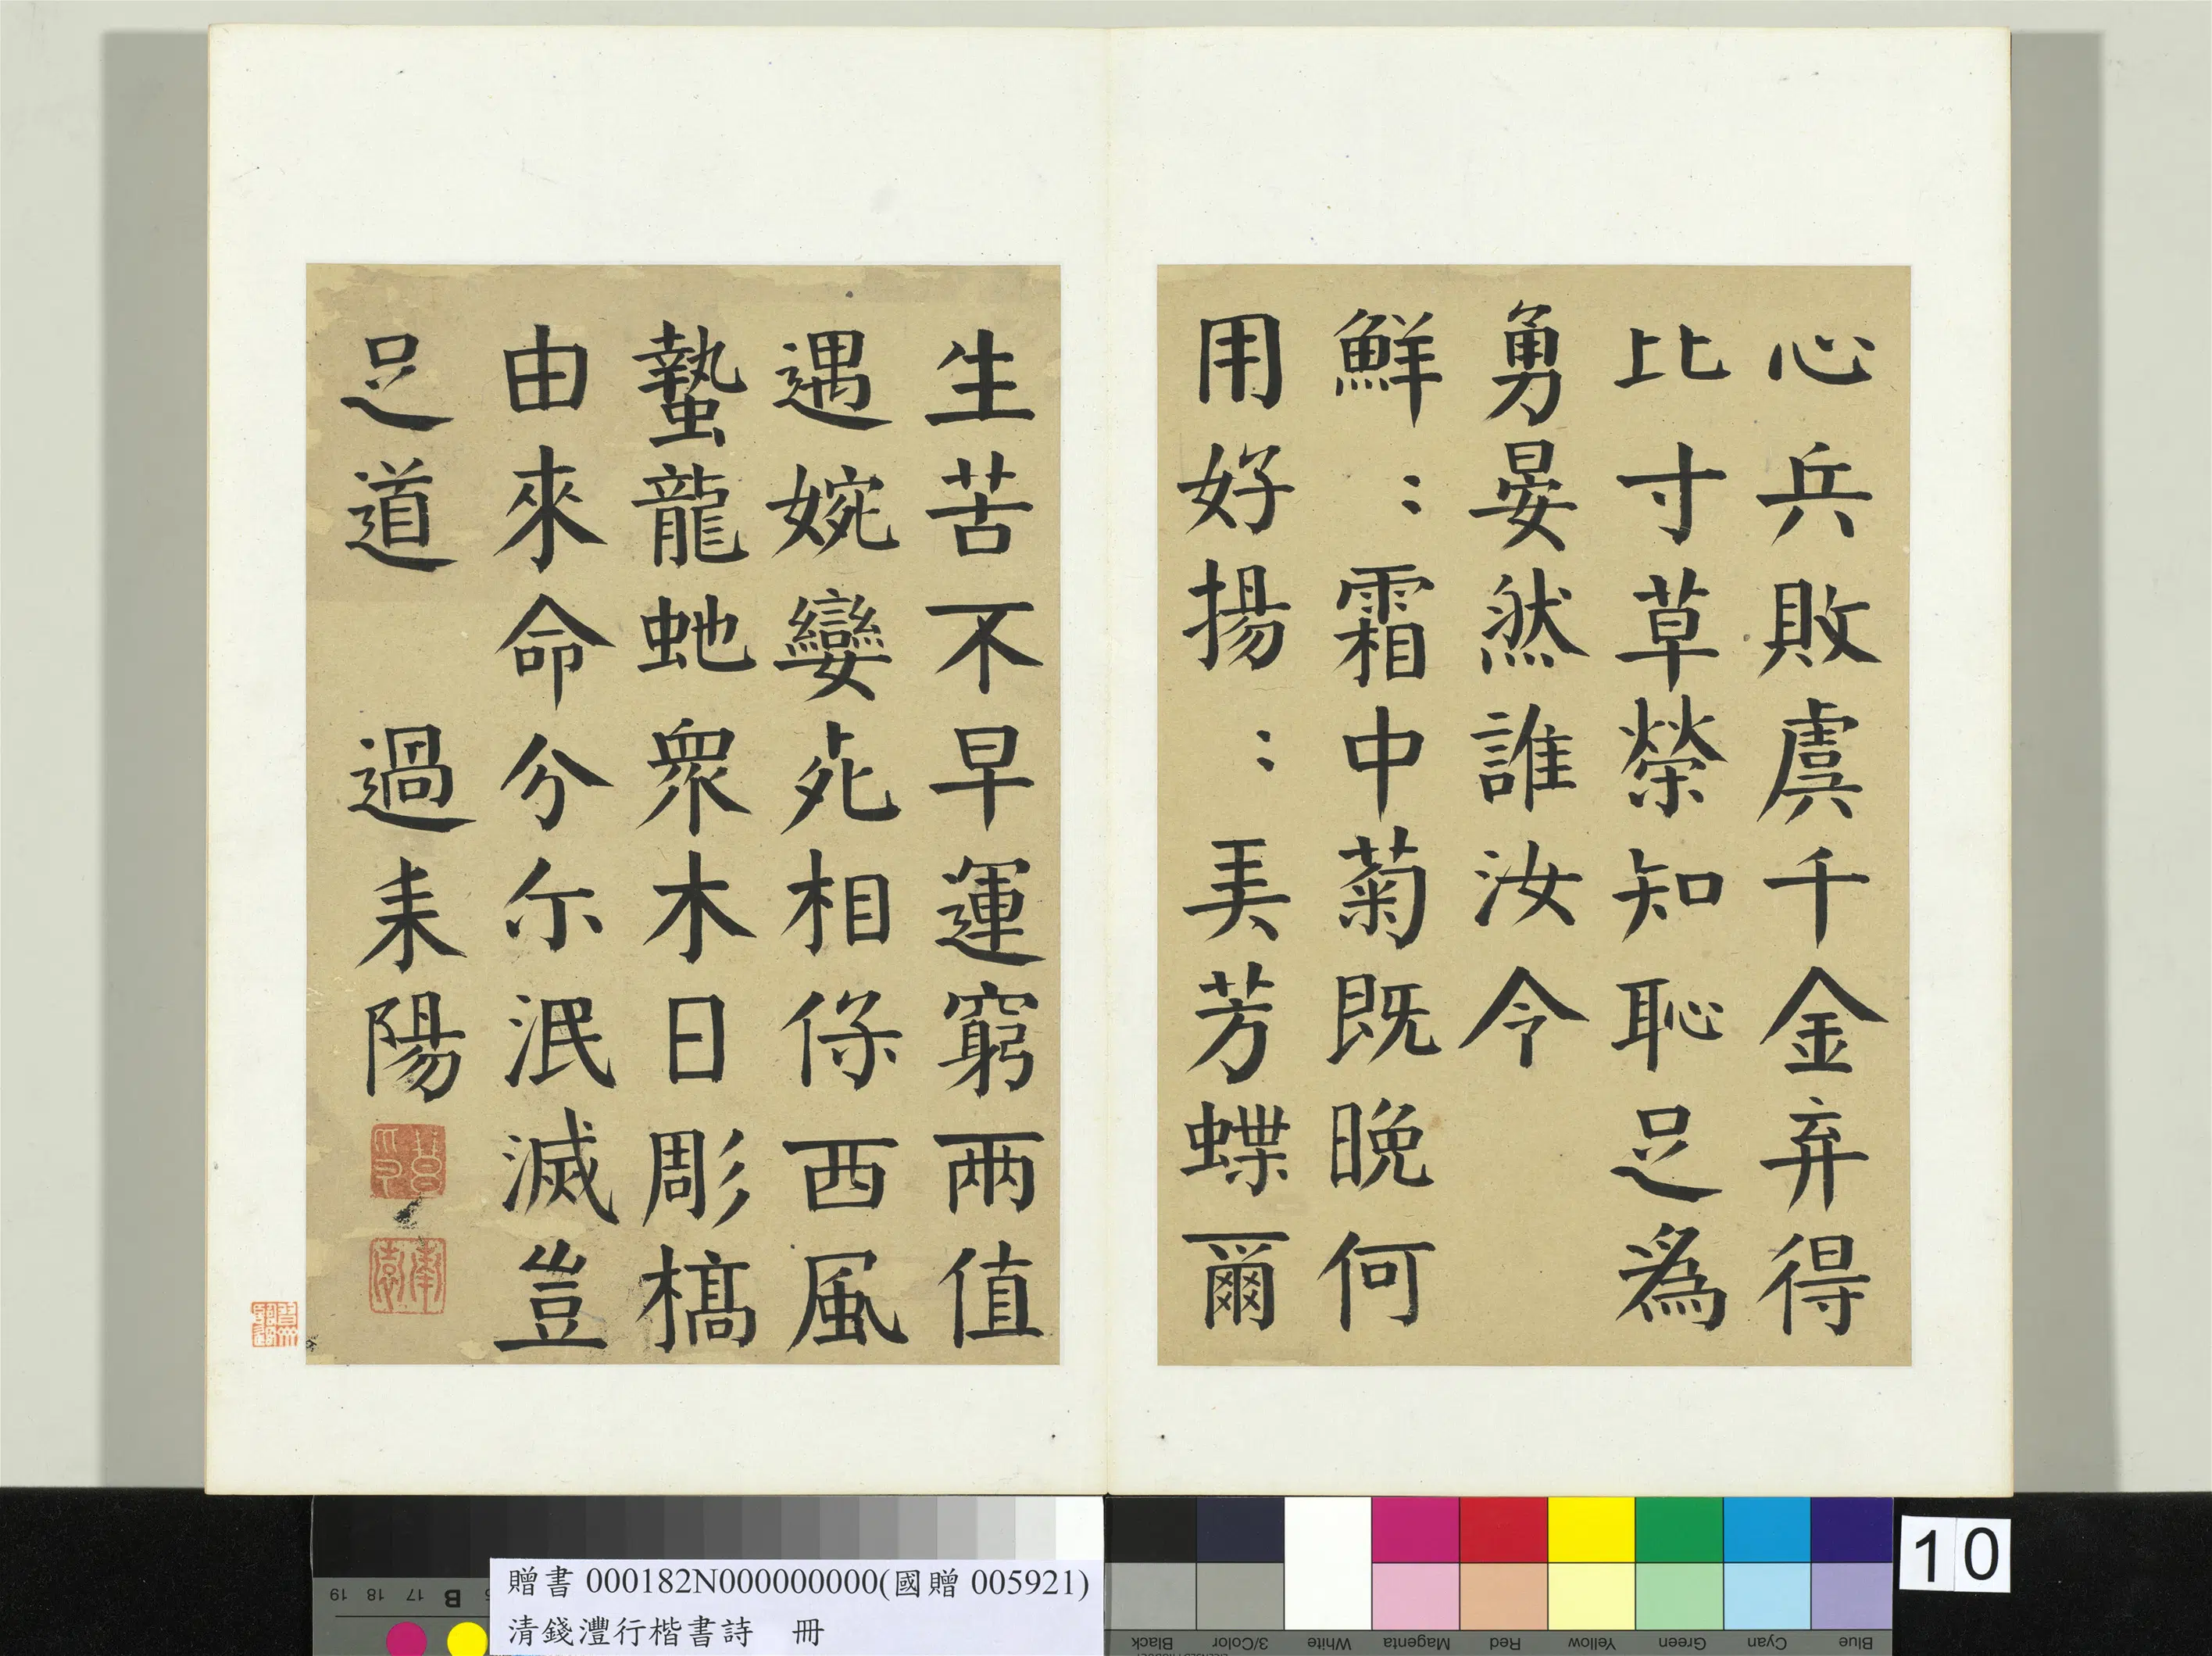 心兵敗虞千金弃得
比寸草榮知恥足為
勇晏然誰汝令
鮮〻霜中菊既晚何
用好揚〻芳蝶爾
生苦不早運窮兩值
遇婉孌死相保西風
蟄龍虵衆木日彫槁
由來命分尒泯滅豈
足道 過耒陽
南園
10
贈書 000182N000000000(國贈 005921)
清錢灃行楷書詩 冊
19 18 17 B
Black 3/Color White Magenta Red Yellow Green Cyan Blue